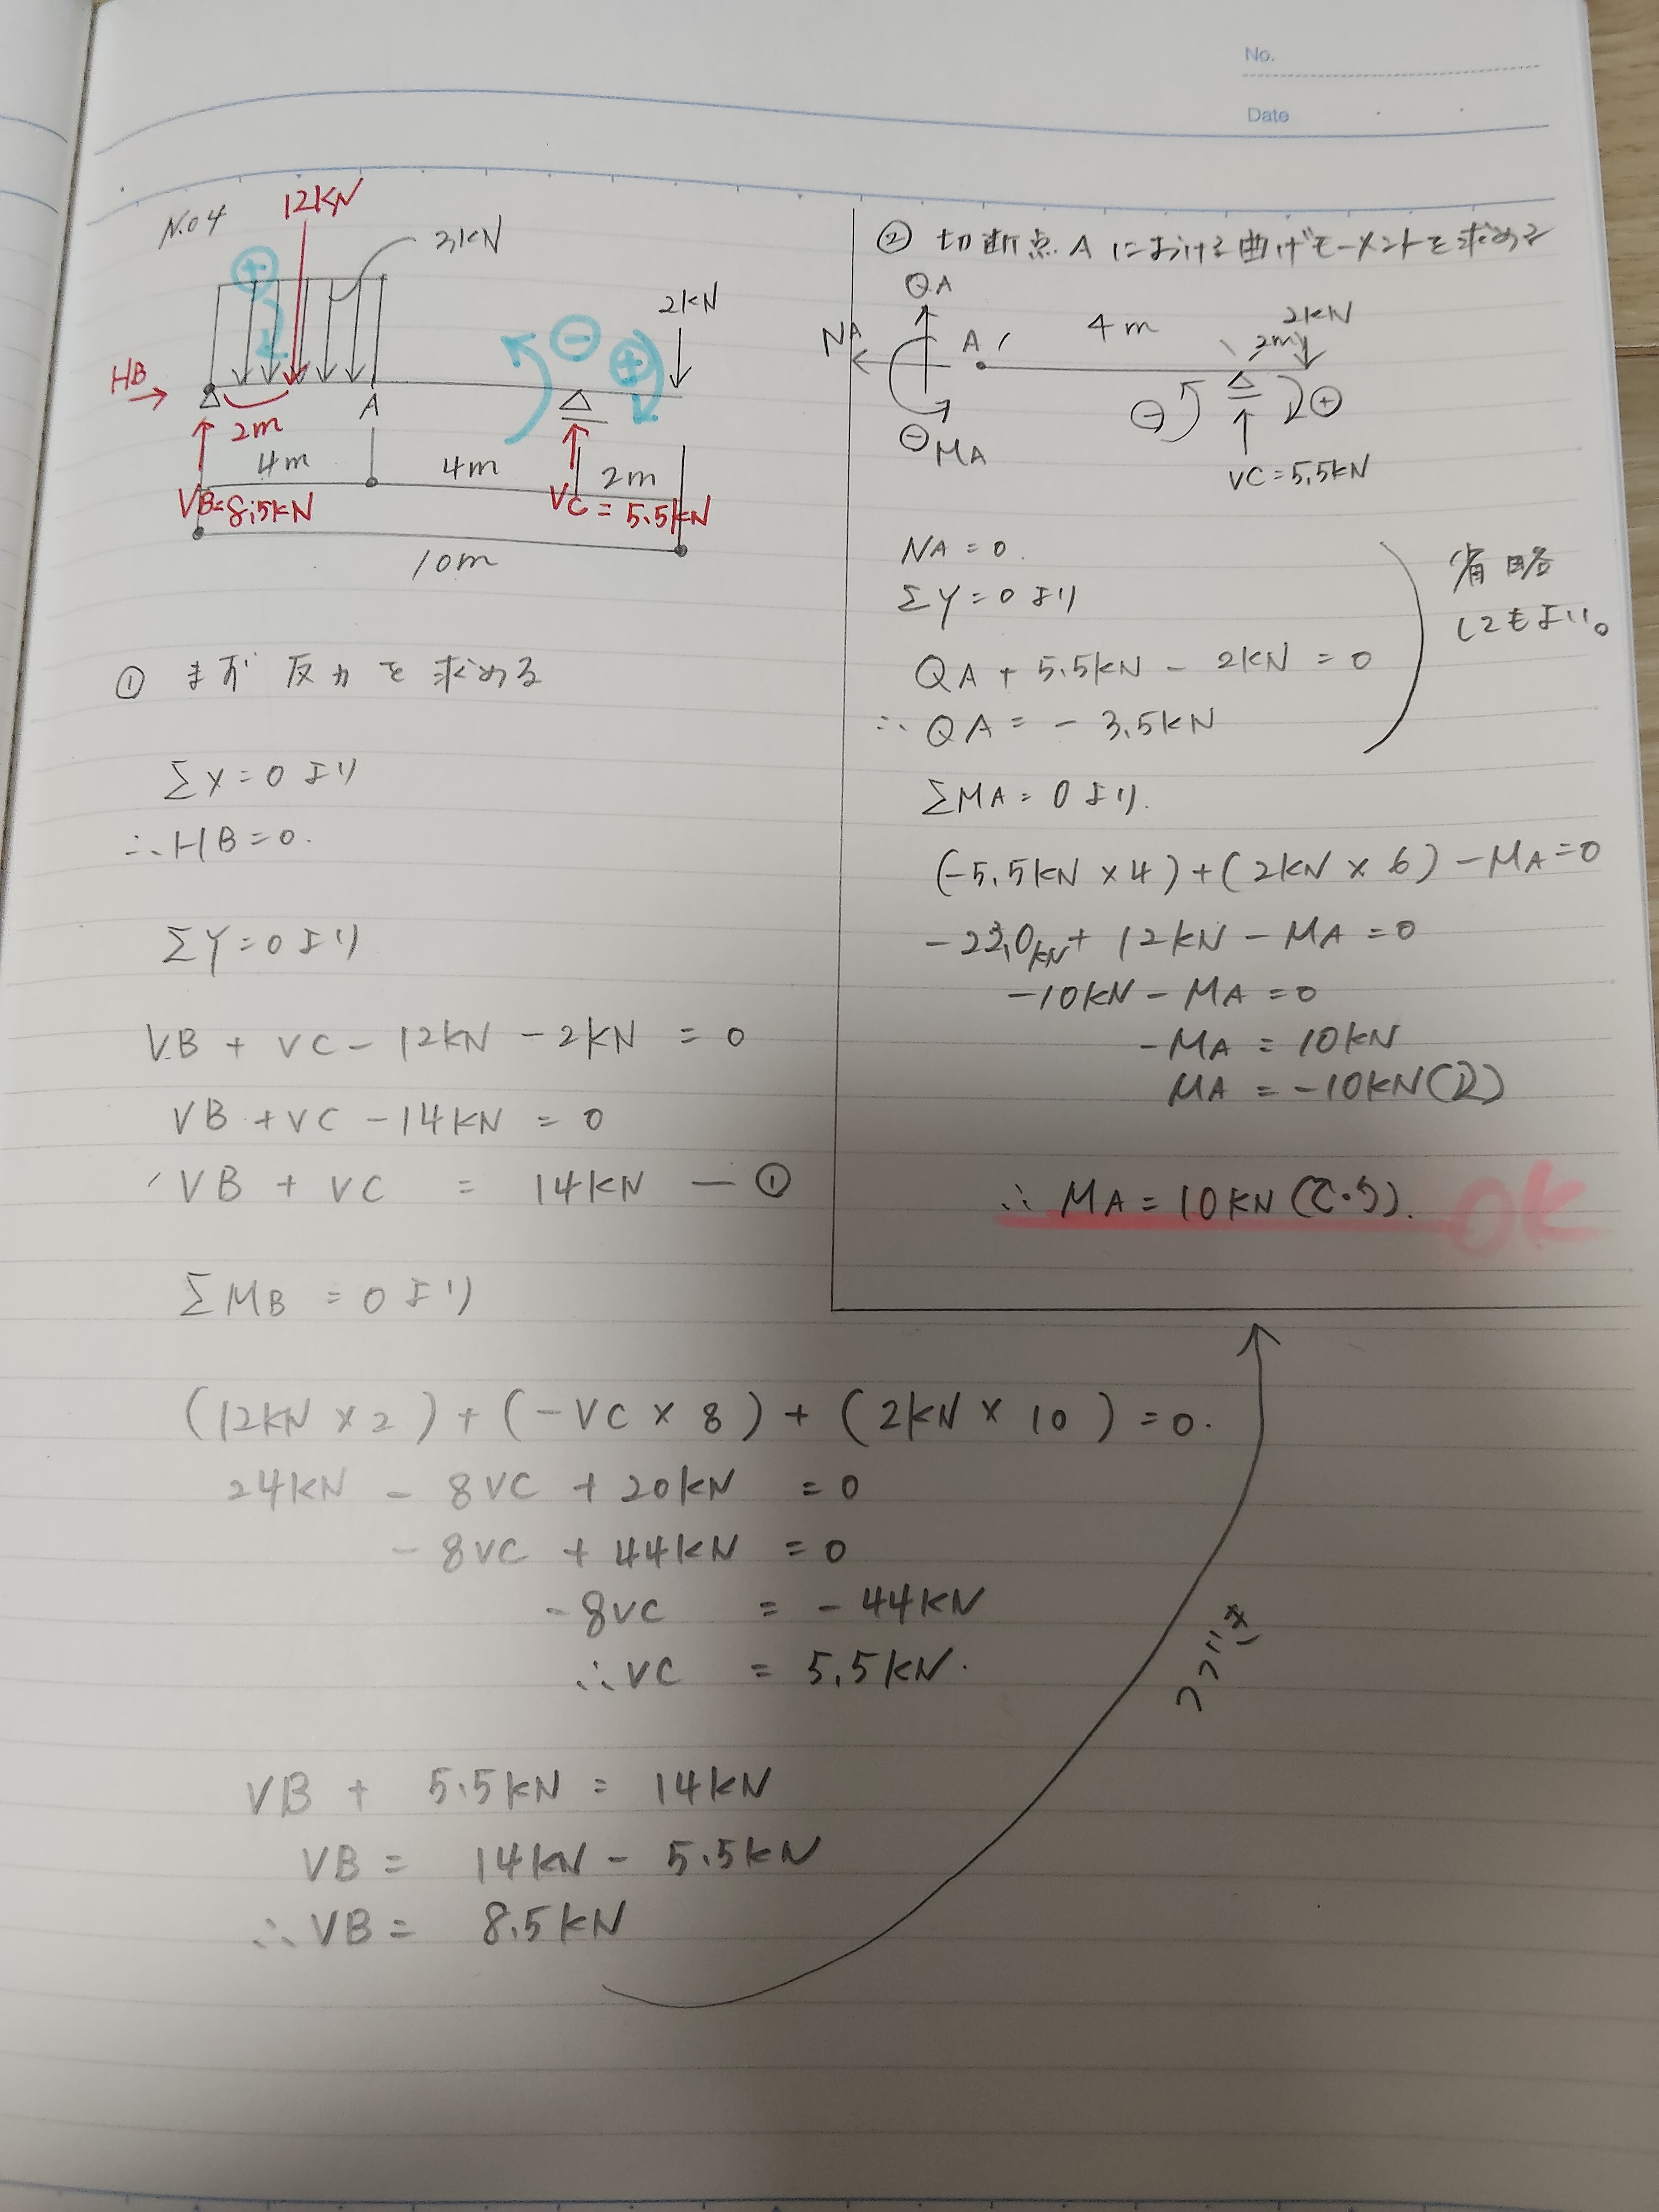 No.
Date
No4
12kN
3kN
⊕
2kN
⊖
⊕
HB
2m
A
4m
4m
2m
VB=8.5kN
VC=5.5kN
10m
① まず反力を求める
ΣX=0より
∴HB=0.
ΣY=0より
VB + VC - 12kN - 2kN = 0
VB + VC - 14kN = 0
VB + VC = 14kN — ①
ΣMB = 0より
(12kN × 2) + (-VC × 8) + (2kN × 10) = 0.
24kN - 8VC + 20kN = 0
-8VC + 44kN = 0
-8VC = -44kN
∴VC = 5.5kN.
VB + 5.5kN = 14kN
VB = 14kN - 5.5kN
∴VB = 8.5kN
つづき
② 切断点Aにおける曲げモーメントを求める
QA
NA
A
4m
2kN
2m
⊖
⊕
⊖MA
VC=5.5kN
NA=0.
ΣY=0より
QA + 5.5kN - 2kN = 0
∴QA = -3.5kN
省略
してもよい。
ΣMA=0より.
(-5.5kN × 4) + (2kN × 6) - MA=0
+ 12kN - MA = 0
-10kN - MA = 0
-MA = 10kN
MA = -10kN
∴ MA = 10kN
OK